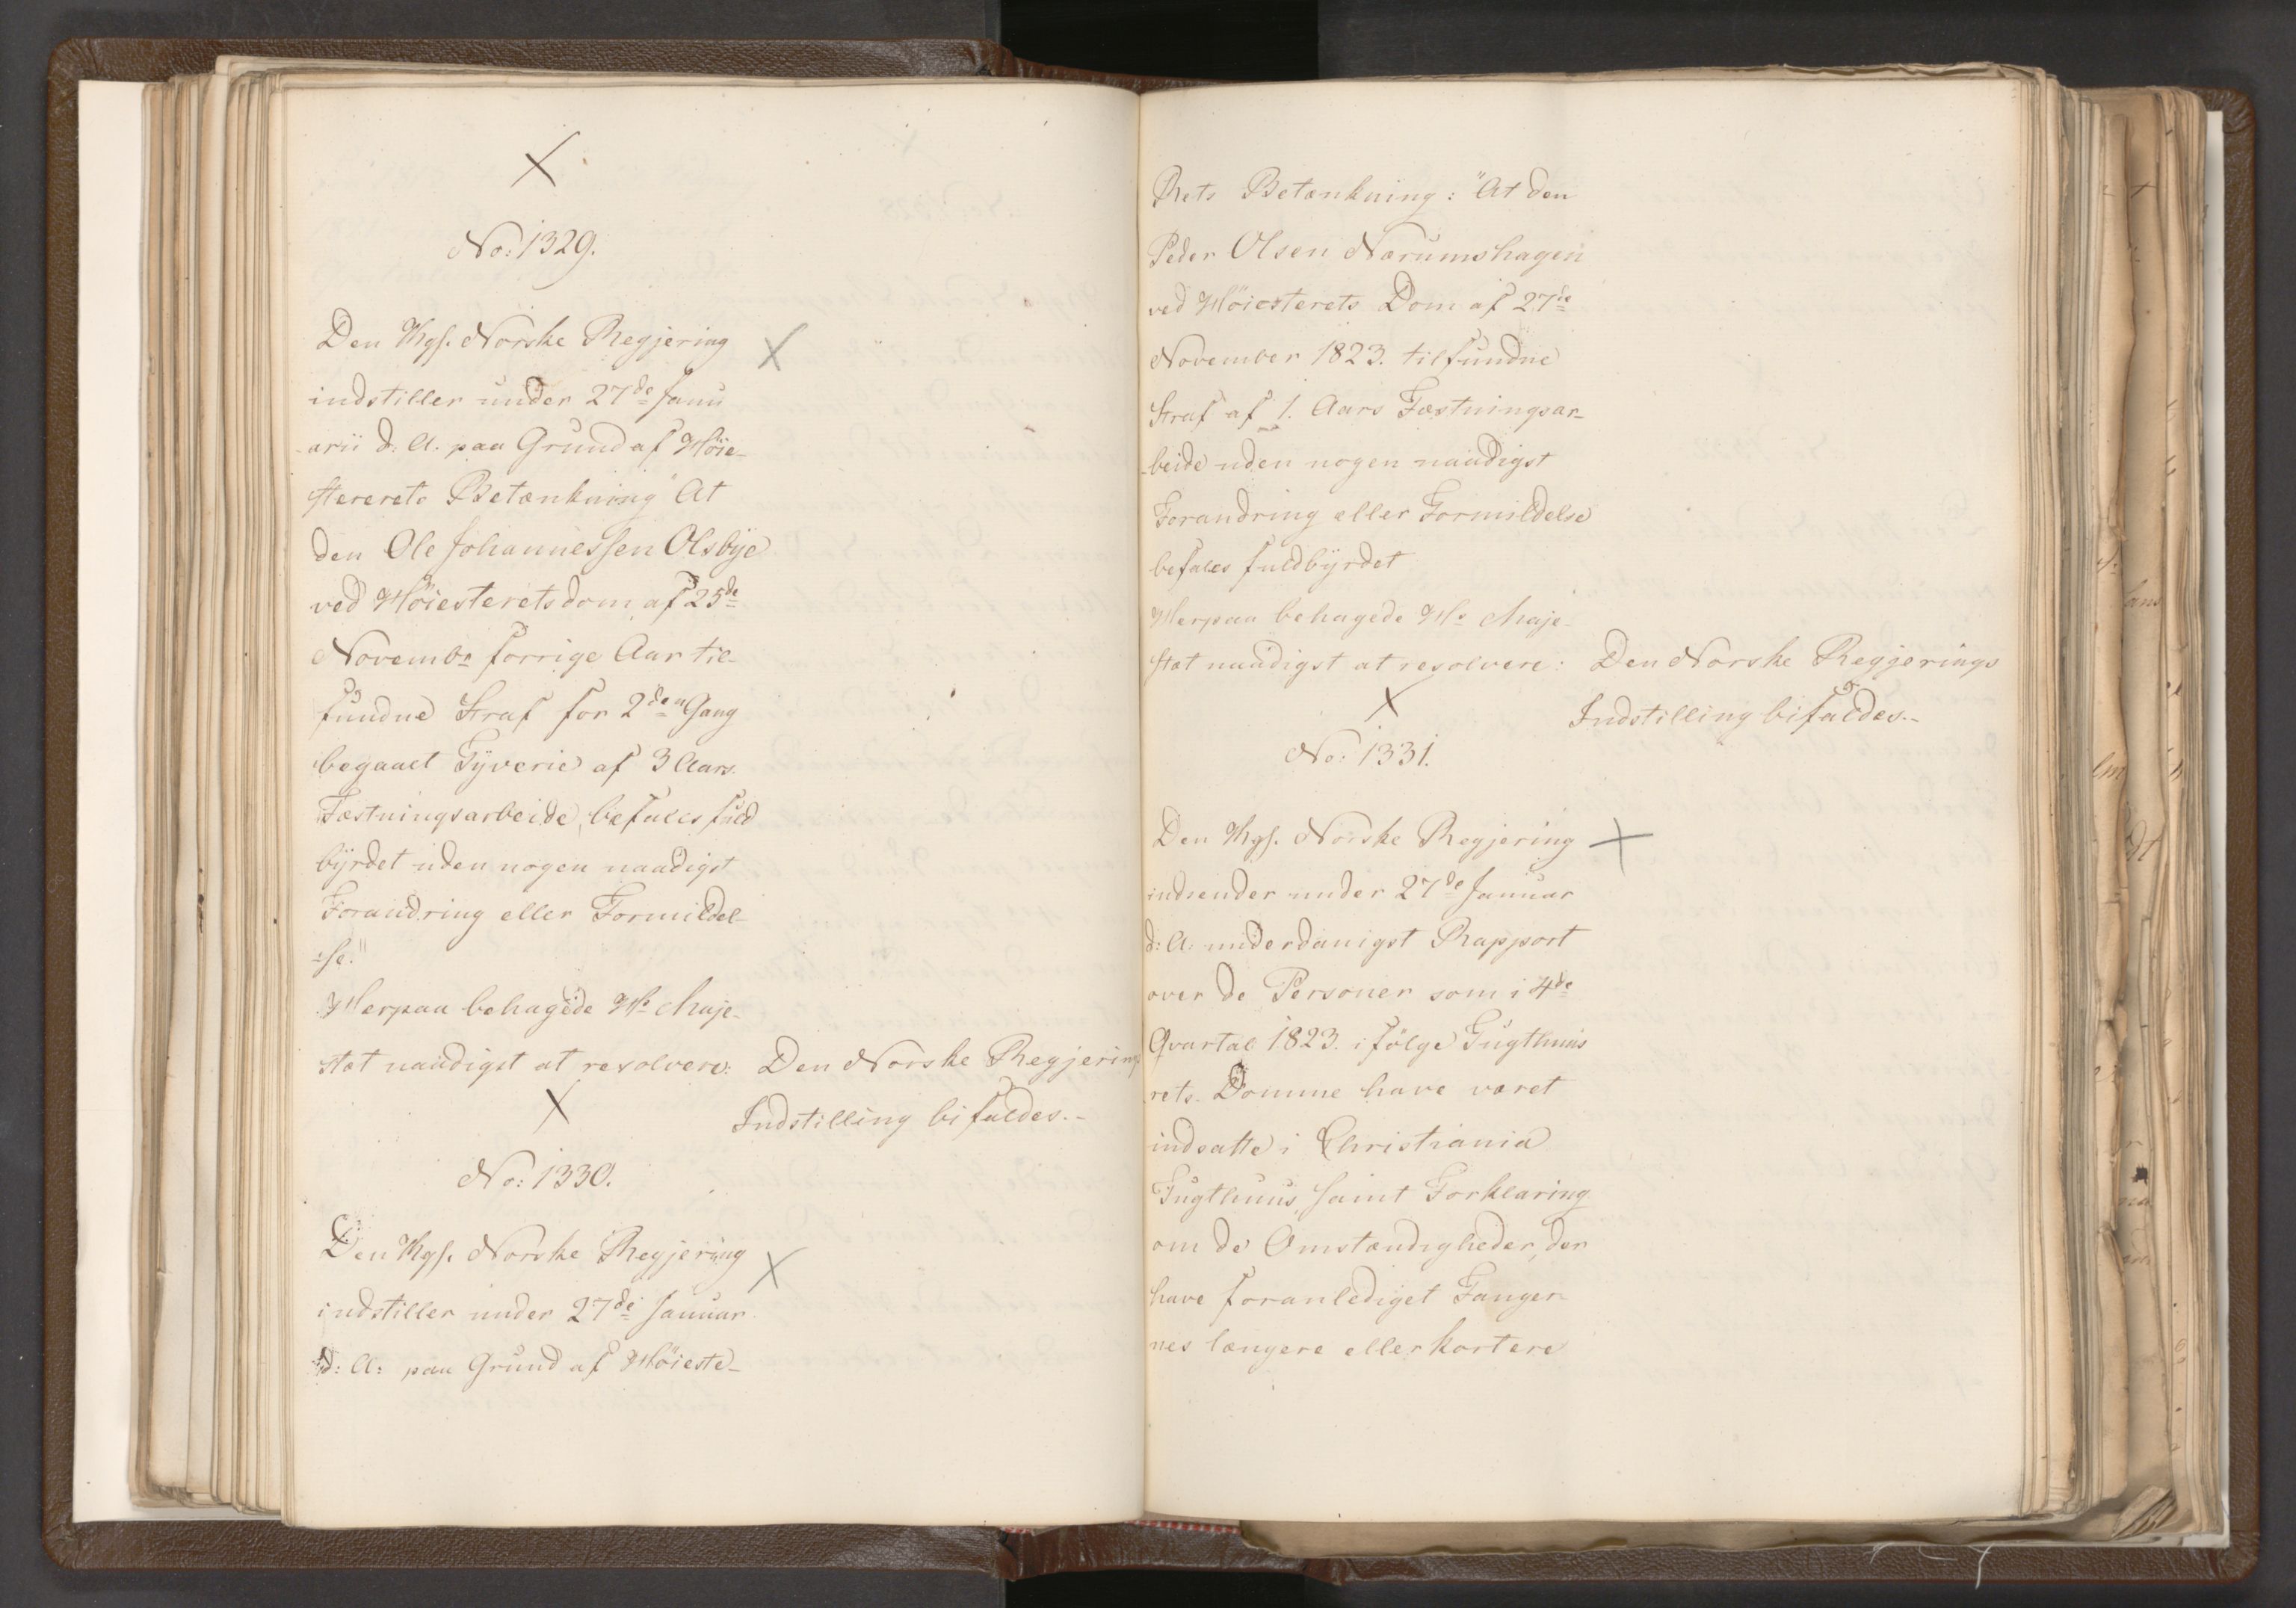 No: 1329.
Den Kgl. Norske Regjering
indstiller under 27de Janu
arii d: A. paa Grund af Høie-
stererets Betænkning "At
den Ole Johannessen Olsbye
ved Høiesteretsdom af 25de
Novembr forrige Aar til-
fundne Straf for 2den Gang
begaaet Tyverie af 3 Aars
Fæstningsarbeide, befales fuld
byrdet uden nogen naadigst
Forandring eller Formildel-
-se."
Herpaa behagede Hs Maje-
stæt naadigst at resolvere: Den Norske Regjerings
Indstilling bifaldes.-
No: 1330.
Den Kgl. Norske Regjering
indstiller under 27de Januar
d: A: paa Grund af Høieste-
Rets Betænkning: "At den
Peder Olsen Narumshagen
ved Høiesterets Dom af 27de
November 1823. tilfundne
Straf af 1. Aars Fæstningsar-
-beide uden nogen naadigst
Forandring eller Formildelse
befales fuldbyrdet
Herpaa behagede Hs Maje-
stæt naadigst at resolvere: Den Norske Regjerings
Indstilling bifaldes.-
No: 1331.
Den Kgl. Norske Regjering
indsender under 27de Januar
d: A: underdanigst Rapport
over de Personer som i 4de
Qvartal 1823. ifølge Tugthuus
rets Domme have været
indsatte i Christiania
Tugthuus, samt Forklaring
om de Omstændigheder, der
have foranlediget Fanger-
nes længere eller kortere